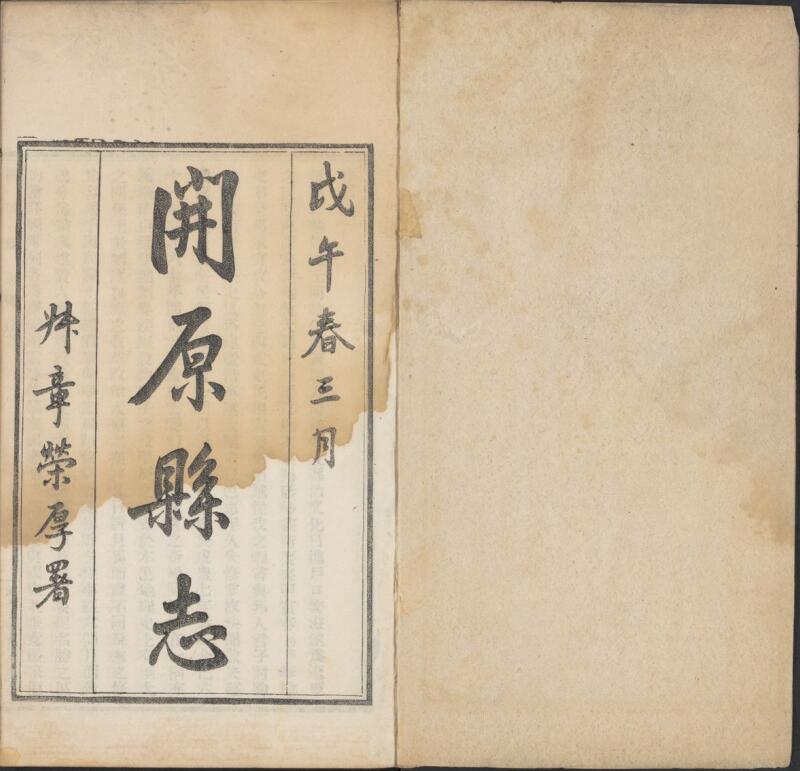 戊午春三月
開原縣志
叔章榮厚署